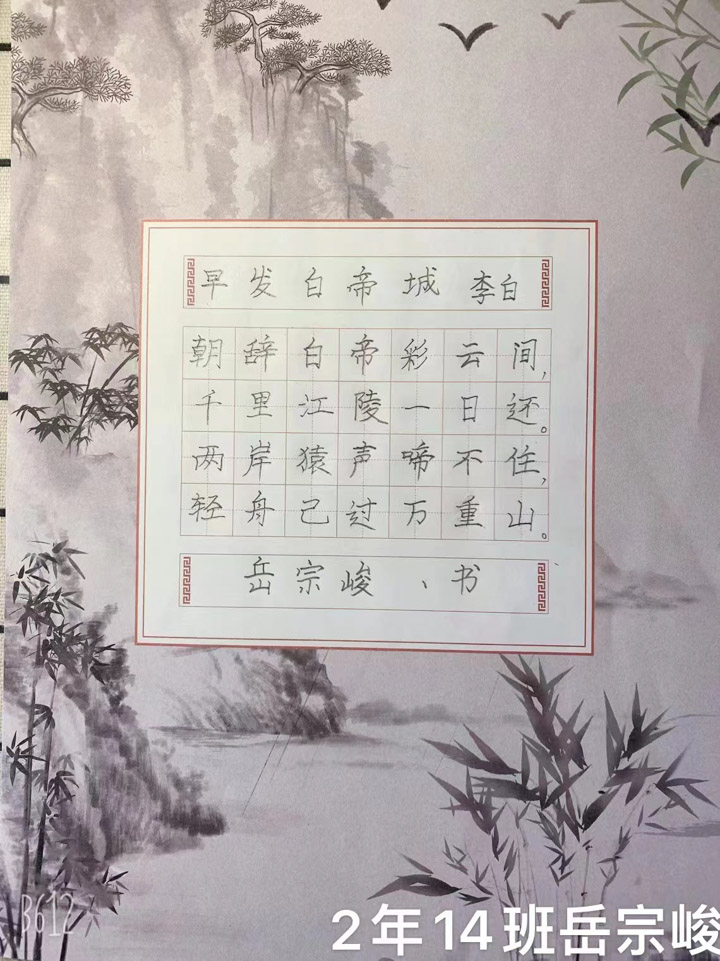 早发白帝城 李白
朝辞白帝彩云间,
千里江陵一日还。
两岸猿声啼不住,
轻舟己过万重山。
岳宗峻、书
B612
2年14班岳宗峻